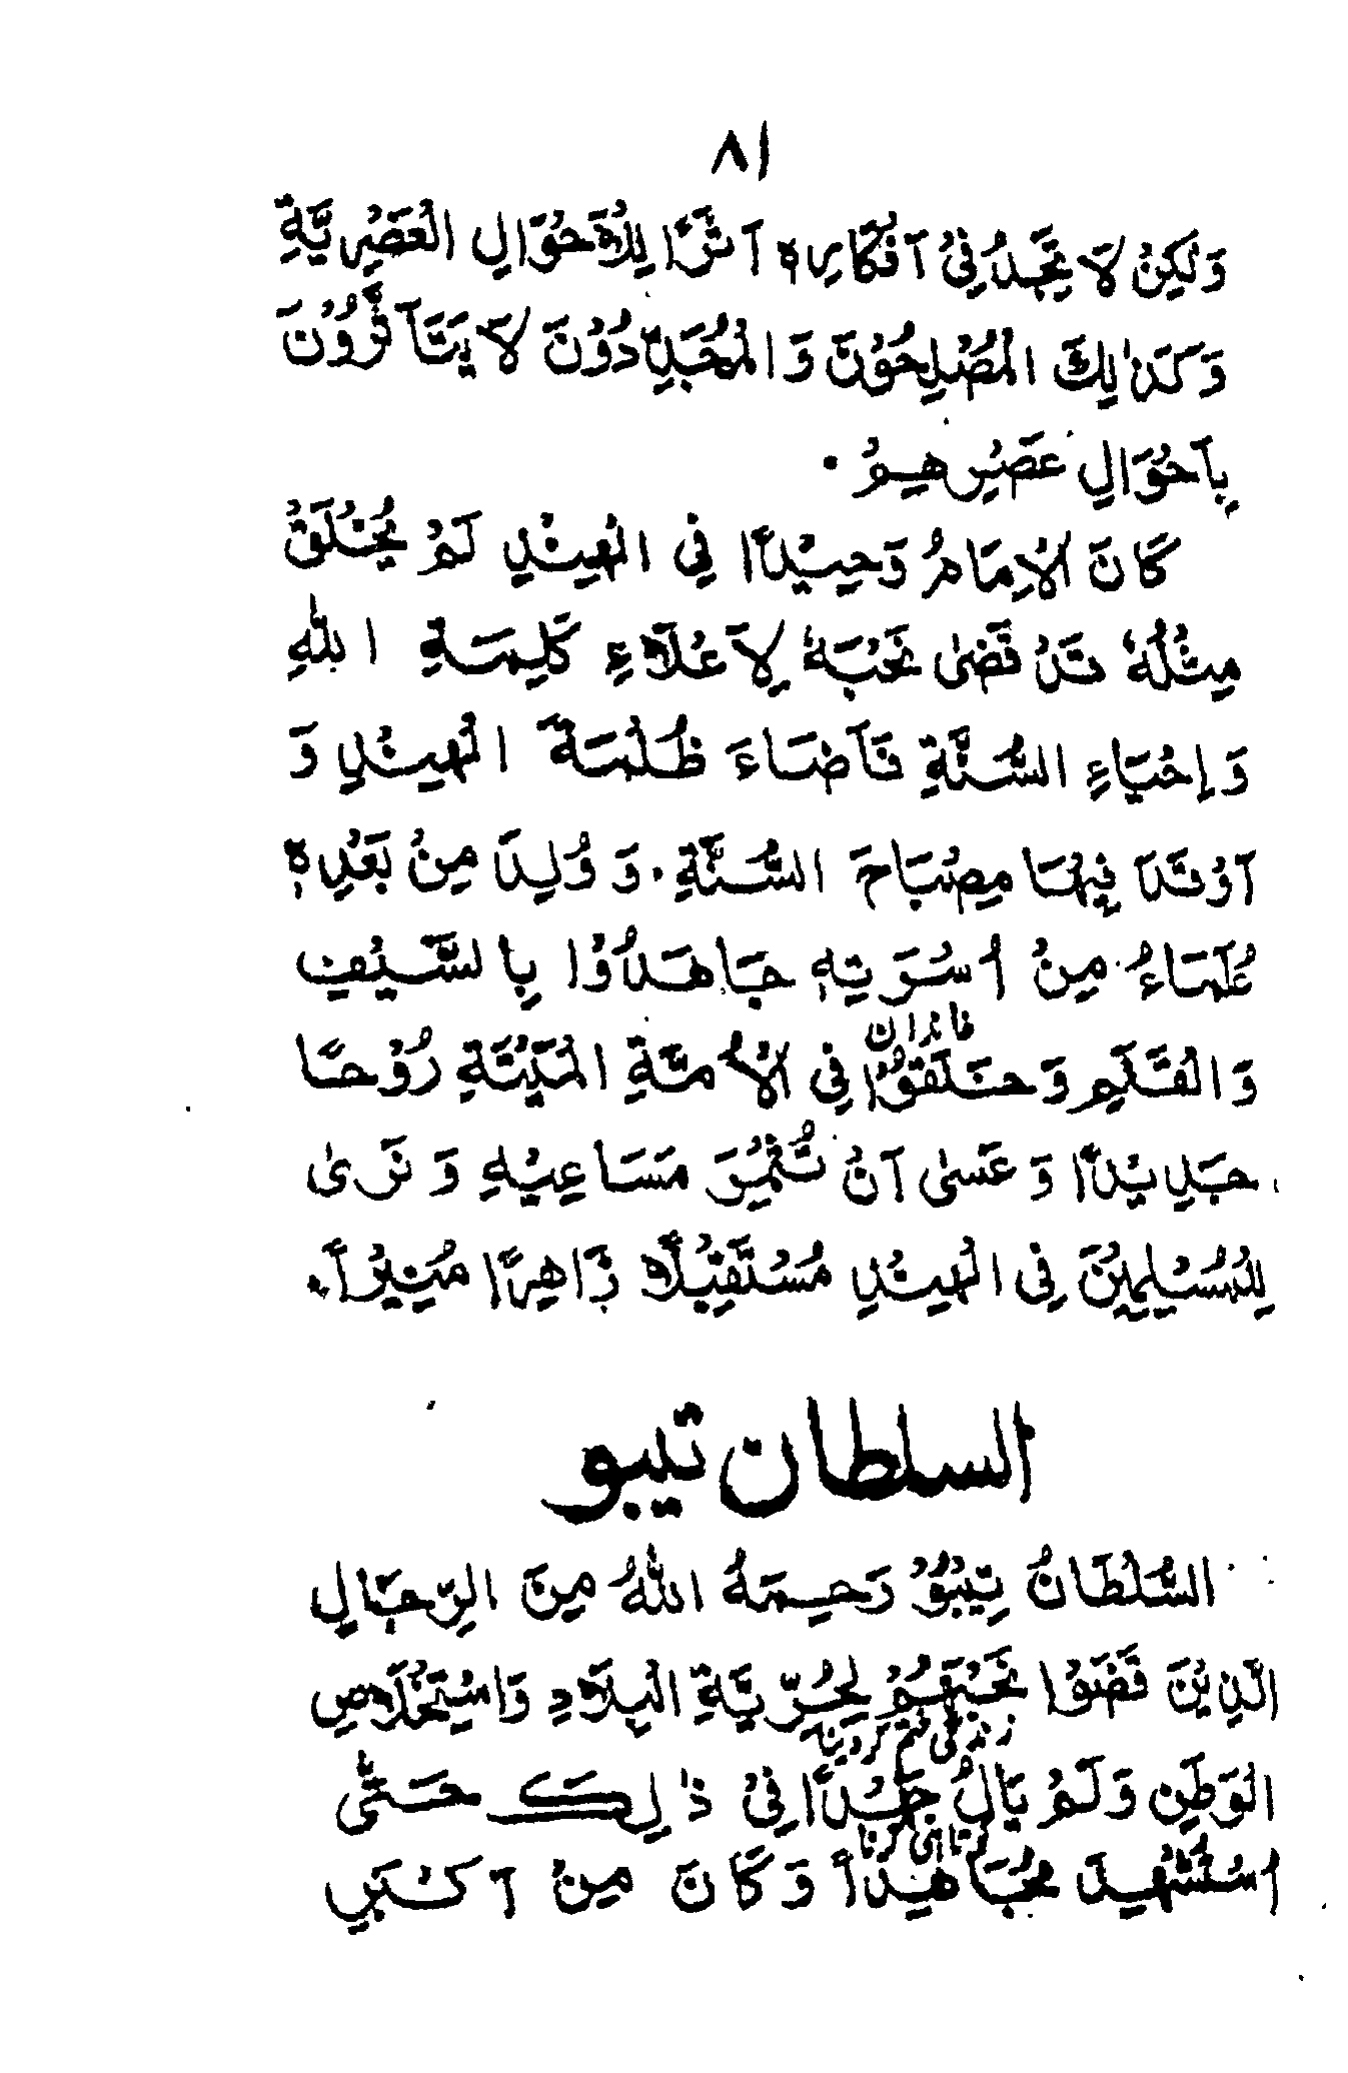 ٨١
وَلٰكِنْ لَا تَجِدُ فِيْ أَفْكَارِهٖ أَثَرًا لِلْأَحْوَالِ الْعَصْرِيَّةِ
وَكَذٰلِكَ الْمُصْلِحُوْنَ وَالْمُجَدِّدُوْنَ لَا يَتَأَثَّرُوْنَ
بِأَحْوَالِ عَصْرِهِمْ ۔
كَانَ الْإِمَامُ وَحِيْدًا فِي الْهِنْدِ لَمْ يُخْلَقْ
مِثْلُهٗ قَدْ قَضٰى نَحْبَهٗ لِإَعْلَاءِ كَلِمَةِ اللّٰهِ
وَإِحْيَاءِ السُّنَّةِ فَأَضَاءَ ظُلْمَةَ الْهِنْدِ وَ
أَوْقَدَ فِيْهَا مِصْبَاحَ السُّنَّةِ ۔ وَ وُلِدَ مِنْ بَعْدِهٖ
عُلَمَاءُ مِنْ أُسْرَتِهٖ جَاهَدُوْا بِالسَّيْفِ
خاندان
وَالْقَلَمِ وَخَلَقُوْا فِي الْأُمَّةِ الْمَيِّتَةِ رُوْحًا
جَدِيْدًا وَعَسٰى أَنْ تُثْمِرَ مَسَاعِيْهِ وَنَرٰى
لِلْمُسْلِمِيْنَ فِي الْهِنْدِ مُسْتَقْبِلًا زَاهِرًا مُنِيْرًا ۔
السلطان تيبو
السُّلْطَانُ تِيْبُوْ رَحِمَهُ اللّٰهُ مِنَ الرِّجَالِ
الَّذِيْنَ قَضَوْا نَحْبَهُمْ لِحُرِّيَّةِ الْبِلَادِ وَاسْتِخْلَاصِ
زندگی ختم کردینا
الْوَطَنِ وَلَمْ يَالُ جَهْدًا فِيْ ذٰلِكَ حَتّٰى
کوتاہی کرنا
اُسْتُشْهِدَ مُجَاهِدًا وَكَانَ مِنْ أَكْبَرِ